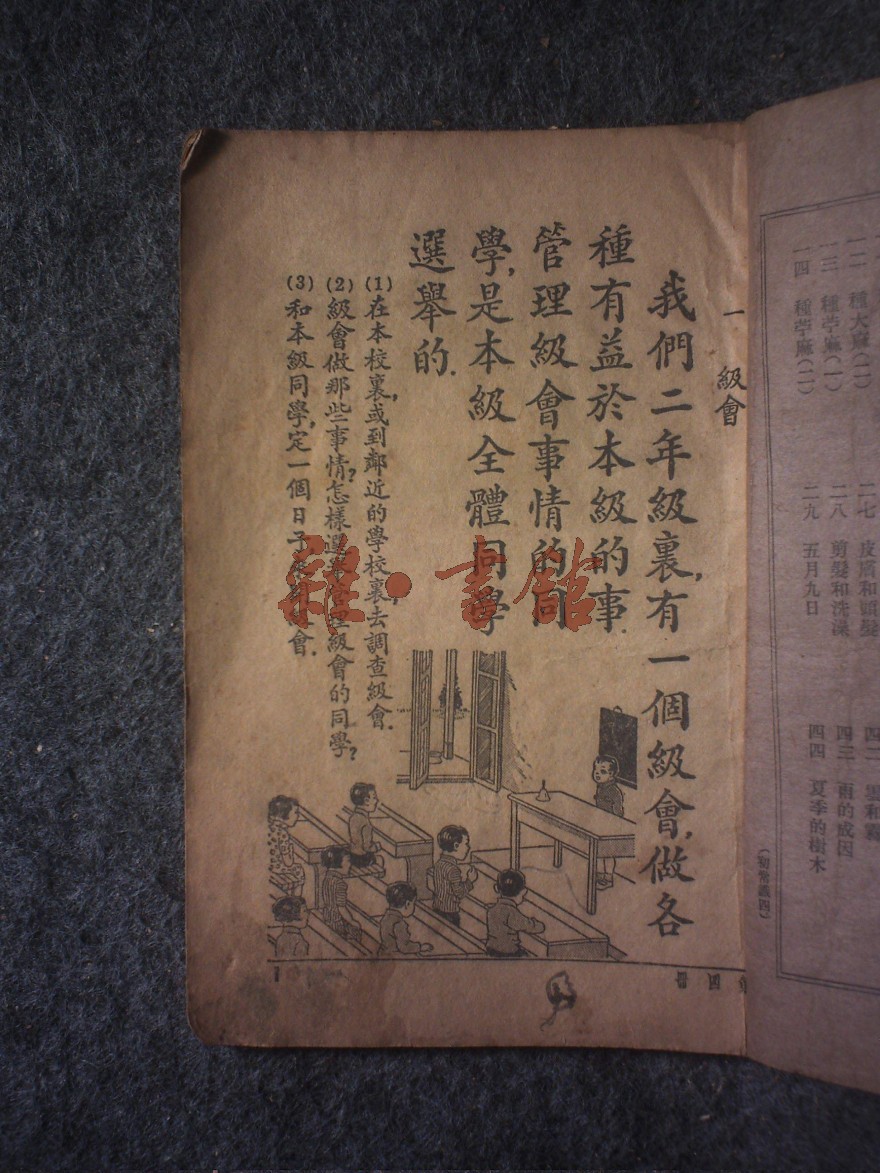 一 級會
我們二年級裏,有一個級會,做各
種有益於本級的事.
管理級會事情的同
學,是本級全體同學
選舉的.
(1)在本校裏,或到鄰近的學校裏,去調查級會.
(2)級會做那些事情?怎樣選舉管理級會的同學?
(3)和本級同學,定一個日子,會.
雜·書館
1
四二 雲和霧
四三 雨的成因
四四 夏季的樹木
二七 皮膚和頭髮
二八 剪髮和洗澡
二九 五月九日
一二 種大麻(二)
一三 種苧麻(一)
一四 種苧麻(二)
(初常識四)